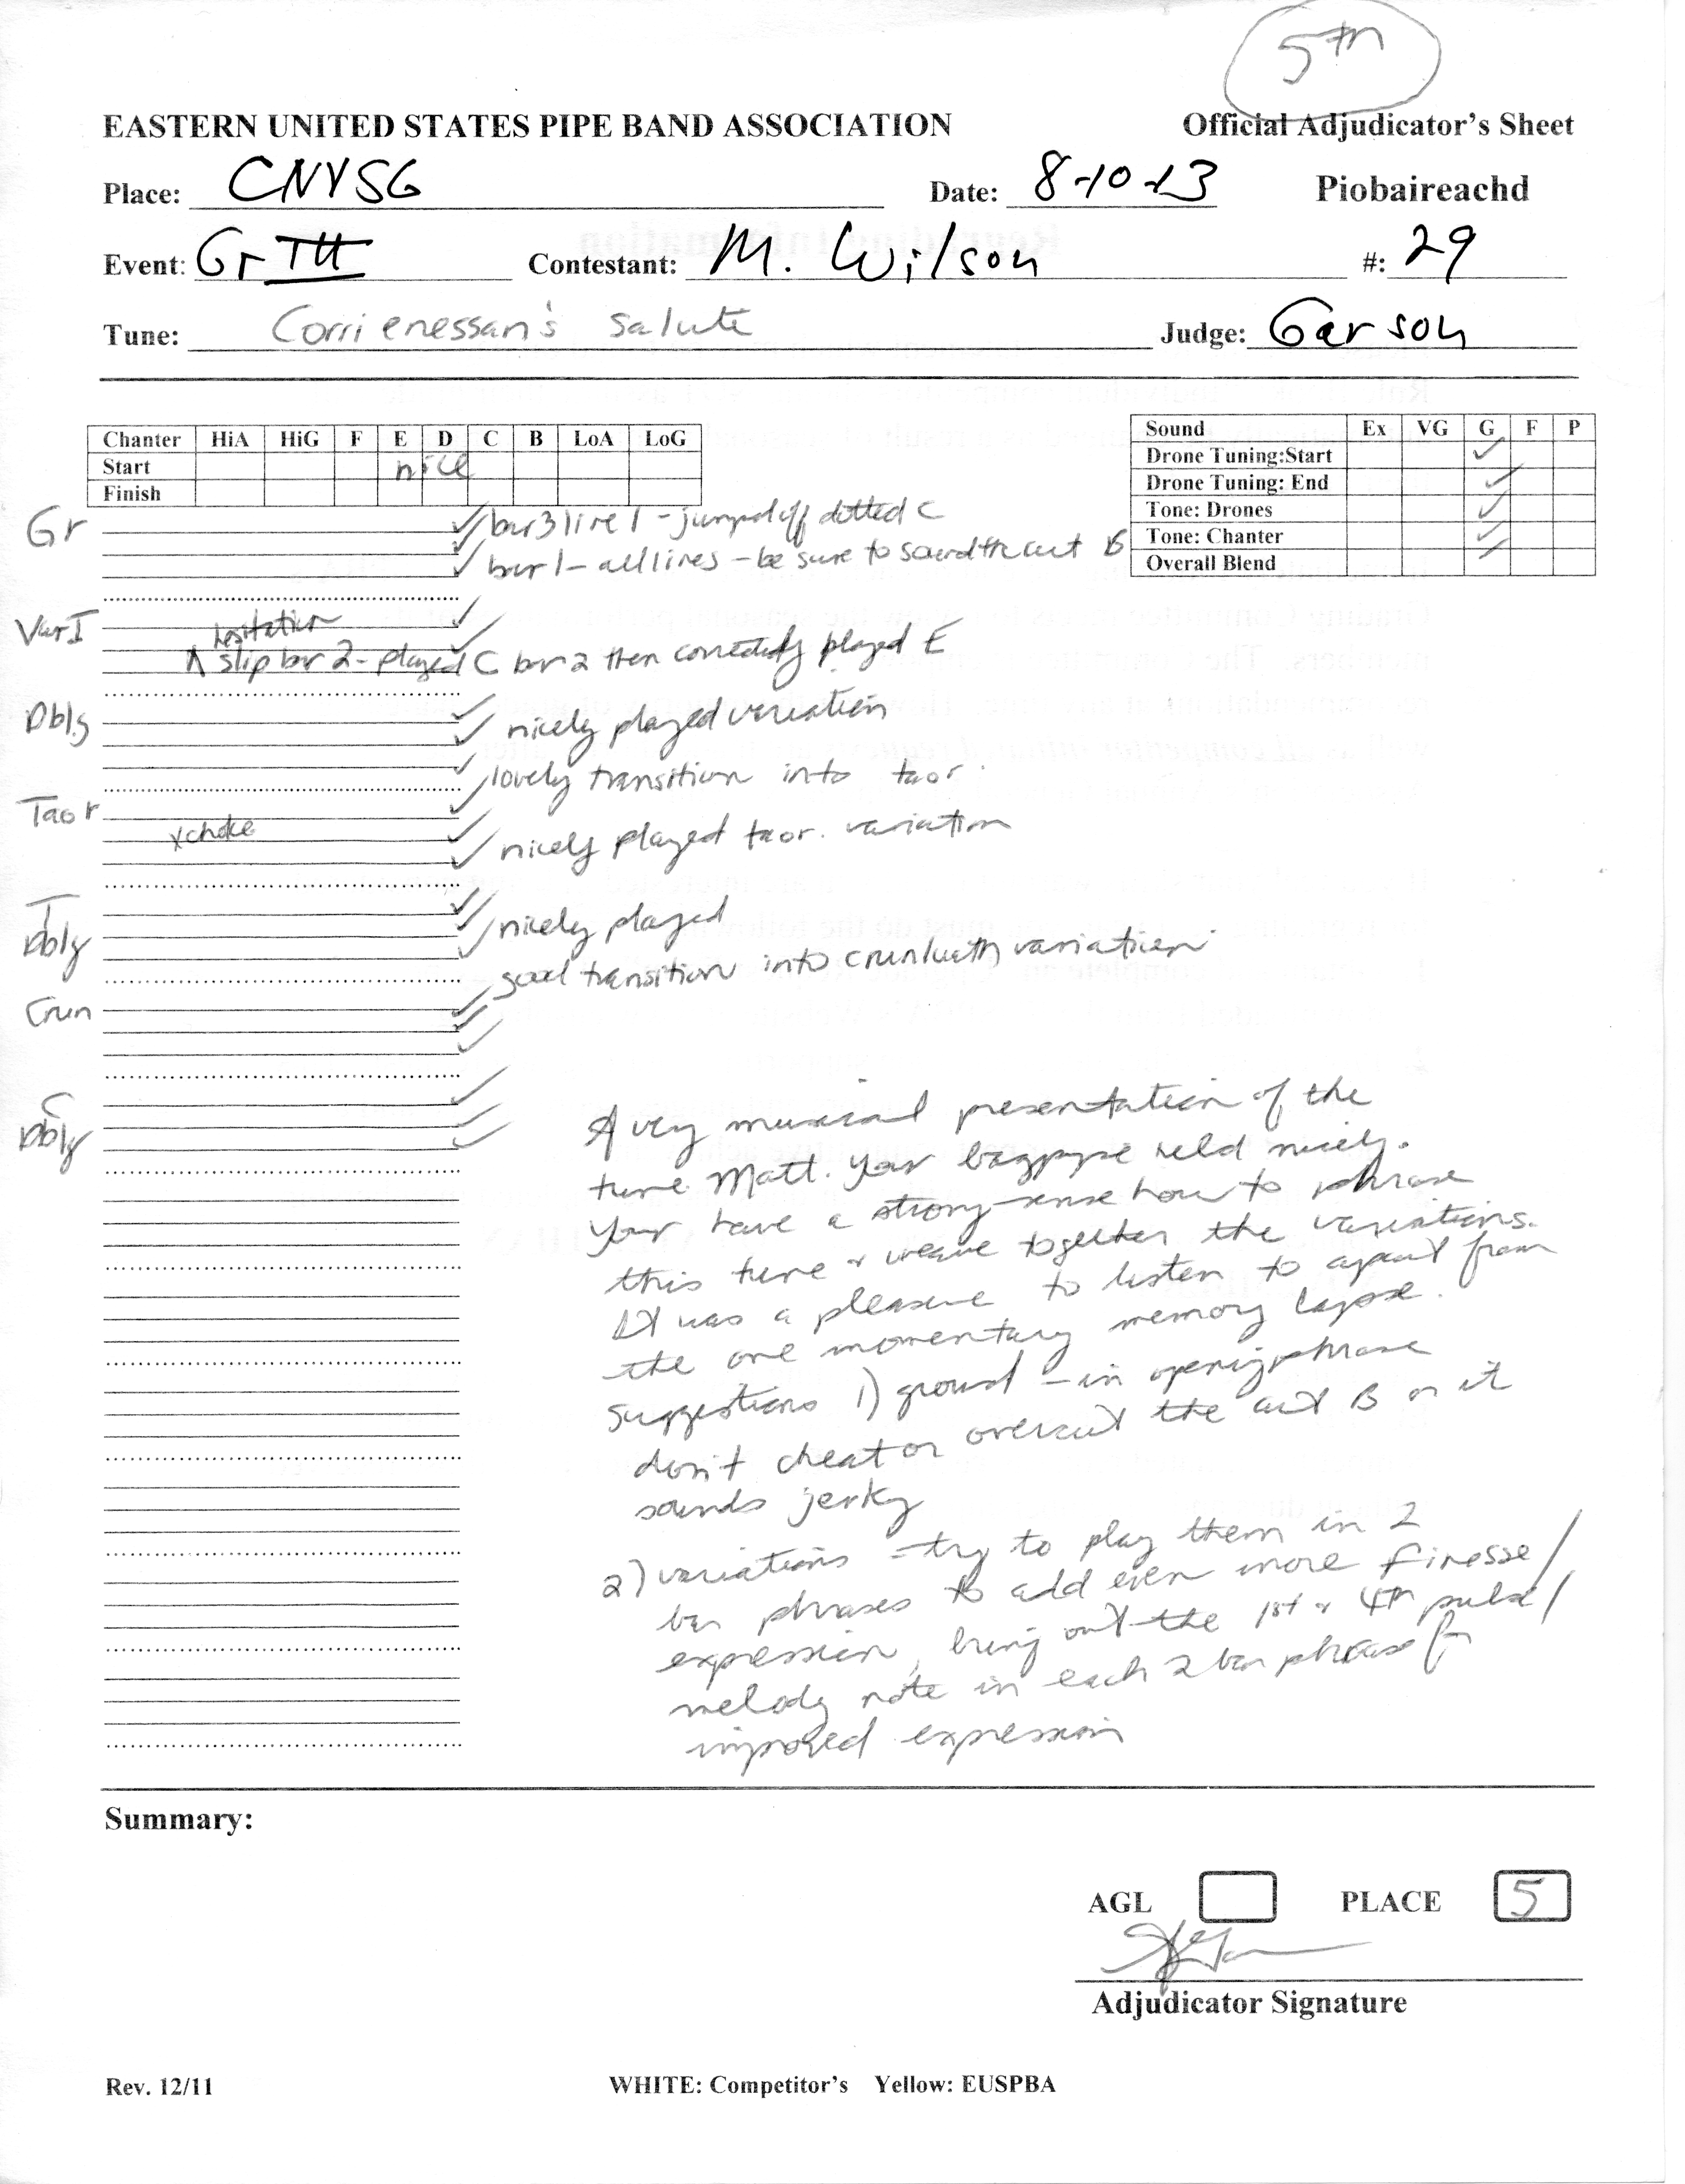 5th
EASTERN UNITED STATES PIPE BAND ASSOCIATION Official Adjudicator's Sheet
Place: CNYSG Date: 8-10-13 Piobaireachd
Event: Gr III Contestant: M. Wilson #: 29
Tune: Corrienessan's Salute Judge: Garson
Chanter HiA HiG F E D C B LoA LoG
Start nice
Finish
Sound Ex VG G F P
Drone Tuning:Start ✓
Drone Tuning: End ✓
Tone: Drones ✓
Tone: Chanter ✓
Overall Blend ✓
Gr
bar 3 line 1 - jumped off dotted C
bar 1 - all lines - be sure to sound the cut B
Var I
hesitation
slip bar 2 - played C bar 2 then correctedly played E
Dblg
nicely played variation
lovely transition into taor.
Taor
x choke
nicely played taor. variation
T Dblg
nicely played
good transition into crunluath variation
Crun
C Dblg
A very musical presentation of the
tune Matt. Your bagpype held nicely.
Your have a strong sense how to phrase
this tune & weave together the variations.
It was a pleasure to listen to apart from
the one momentary memory lapse.
Suggestions 1) ground - in opening phrase
don't cheat or overcut the cut B or it
sounds jerky
2) variations - try to play them in 2
bar phrases to add even more finesse/
expression, bring out the 1st & 4th pulse/
melody note in each 2 bar phrase for
improved expression
Summary:
AGL PLACE 5
Adjudicator Signature
Rev. 12/11 WHITE: Competitor's Yellow: EUSPBA